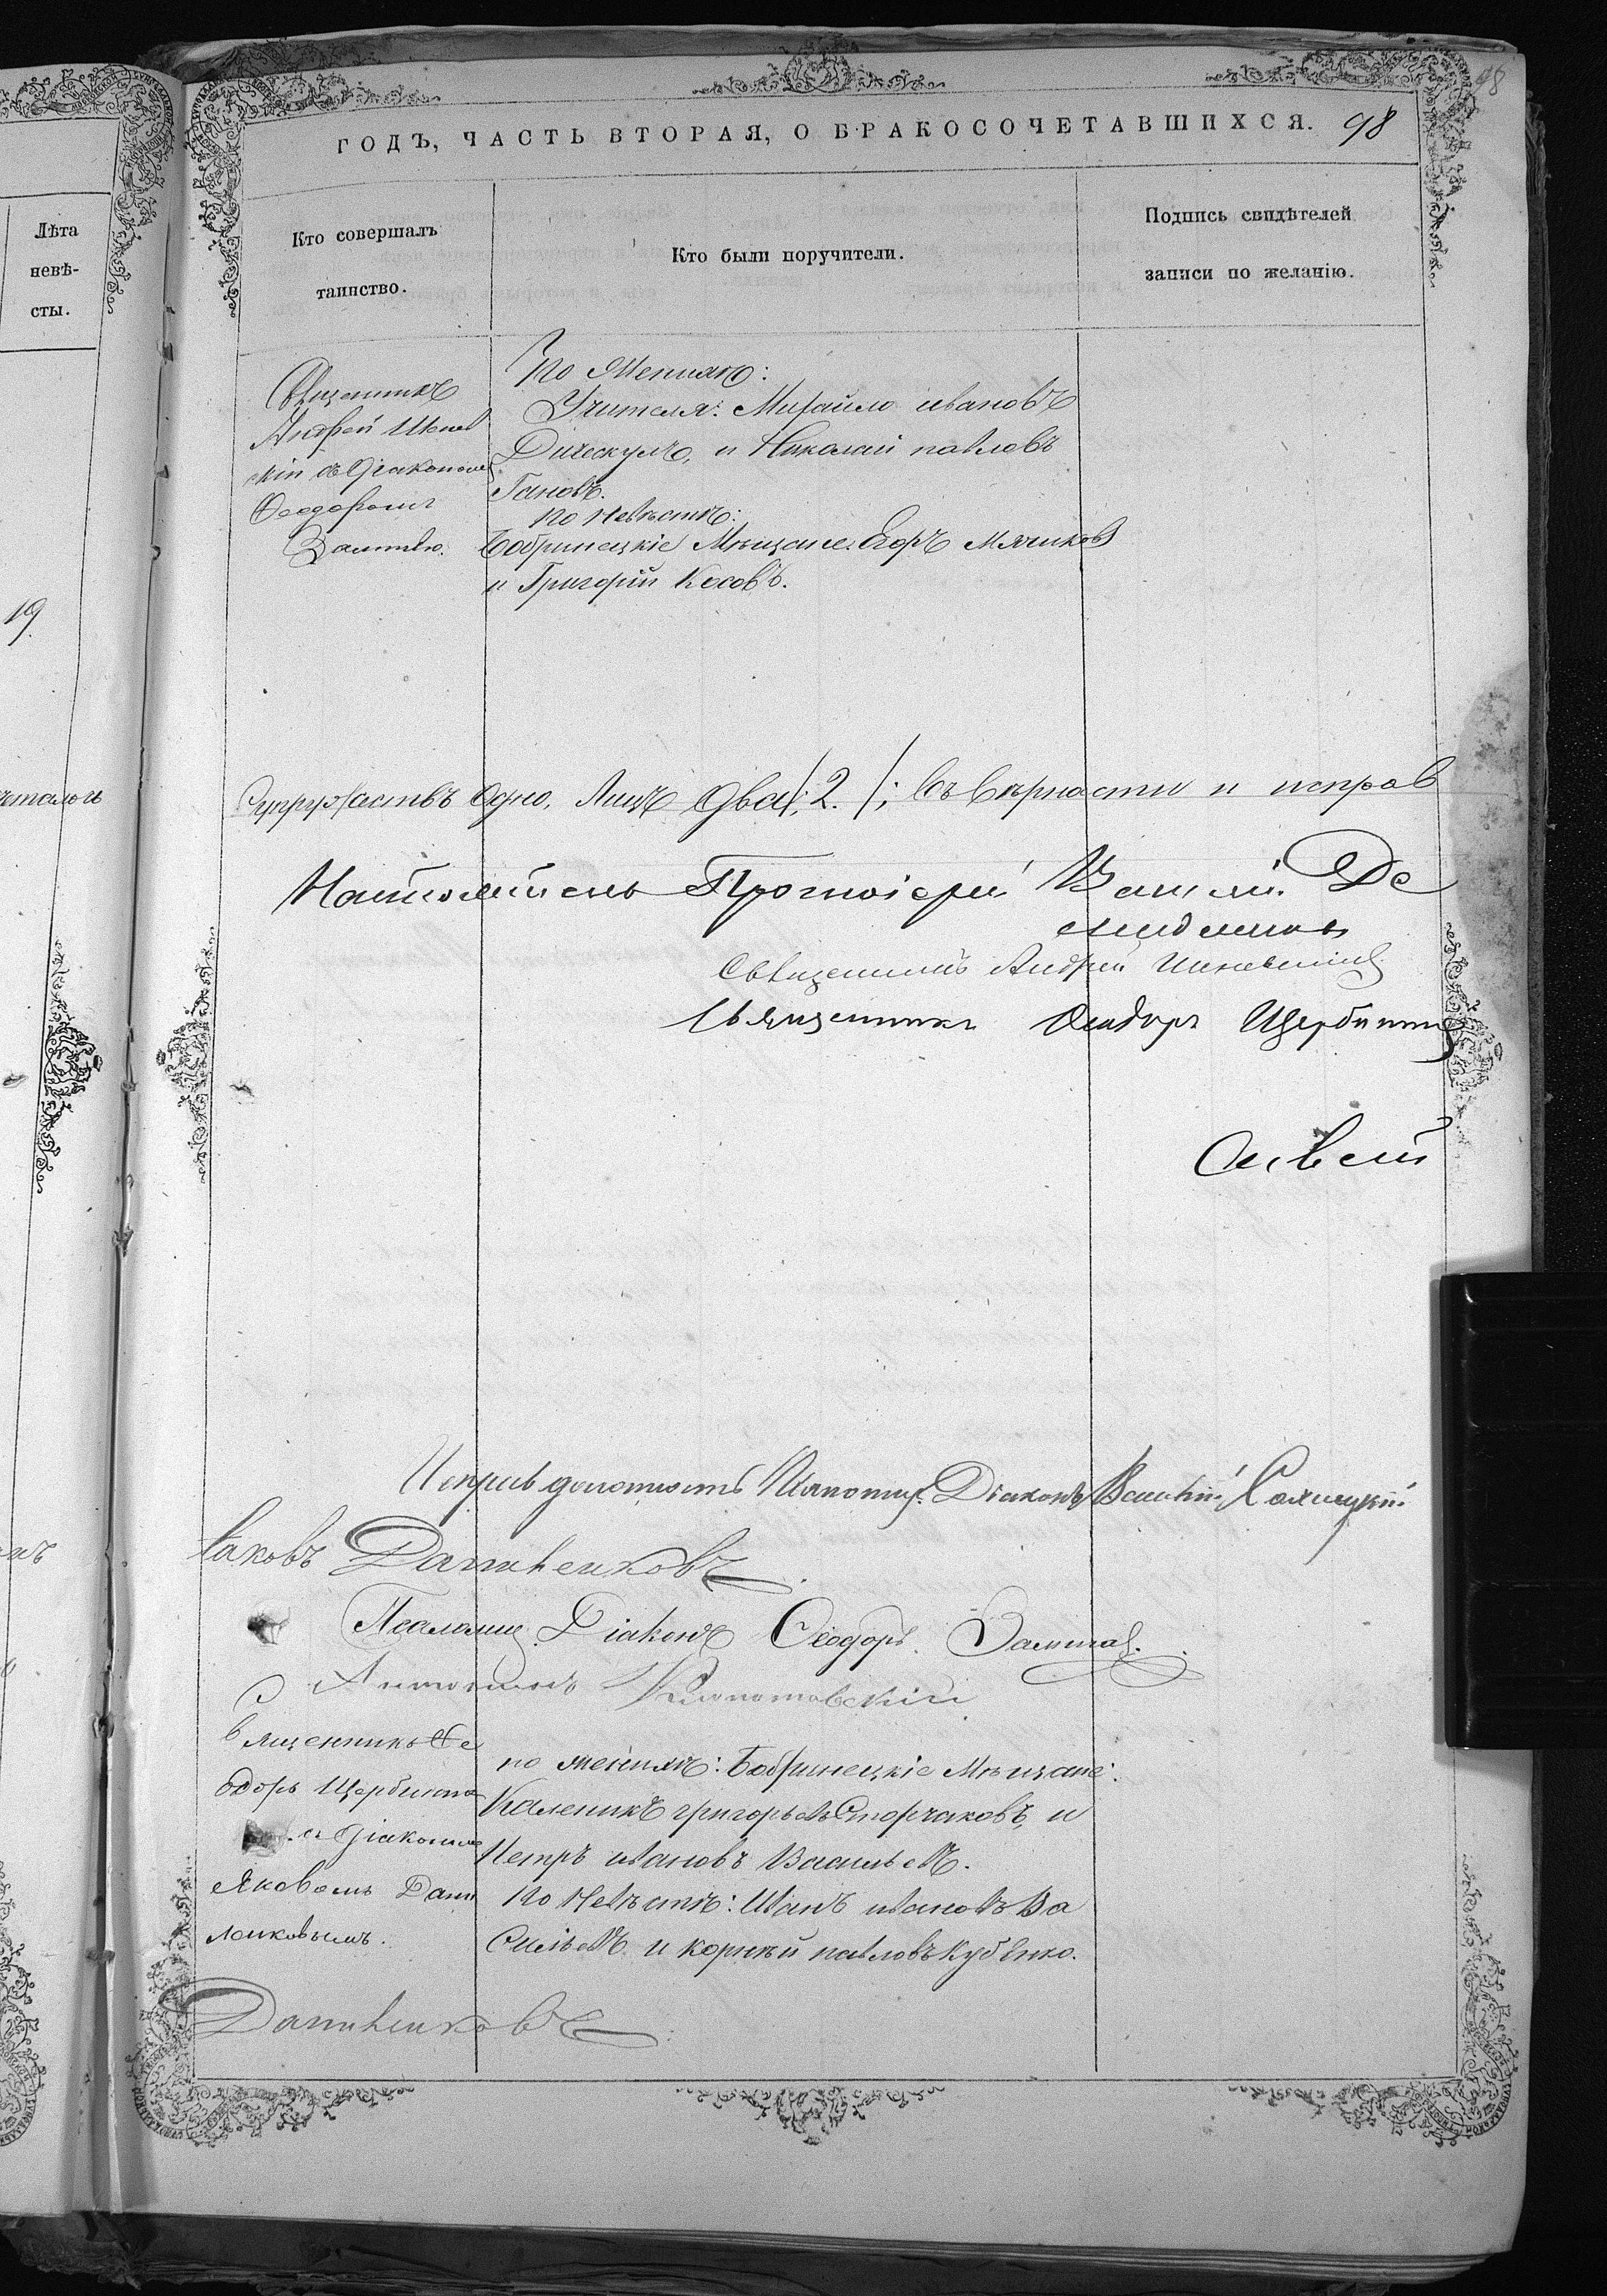 98
ГОДЪ, ЧАСТЬ ВТОРАЯ, О БРАКОСОЧЕТАВШИХСЯ. 98
Лѣта
невѣ-
сты.
Кто совершалъ
таинство.
Кто были поручители.
Подпись свидѣтелей
записи по желанію.
19.
Священникъ
Андрей
скій съ Діакономъ
Ѳеодоромъ
По Жениху:
Учителя: Михайло ивановъ
и Николай павловъ
Гановъ.
По Невѣстѣ:
Бобринецкіе Мѣщане: Егоръ Мячиковъ
и Григорій Косовъ.
Супружествъ Одно, Лицъ Два /: 2. /: Въ вѣрности и исправ
Настоятель Протоіерей Василій Де
Священникъ Андрей
Священникъ Ѳеодоръ Щербина
Исправ должность Псаломщ. Діаконъ Василій
Іаковъ Даниленковъ
Псаломщ. Діаконъ Ѳеодоръ
Священникъ Ѳе
одоръ Щербина
съ Діакономъ
Яковомъ Дани
ленковымъ.
по женихѣ: Бобринецкіе Мѣщане:
Каленикъ григорьевъ Сторчаковъ, и
Петръ ивановъ Васильевъ.
По Невѣстѣ: Иванъ ивановъ Ва
сильевъ и корнѣй павловъ Кубенко.
Даниленковъ